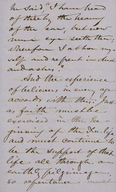 he said "I have heard
of thee by the hearing
of the ear but now
mine eye seeth thee
wherefore I abhor my
self and repent in dust
and ashes."
And the experience
of believers in every age
accords with this. Just
as faith must be
exercised in the be
ginning of the Xn life
and must continue to
be the support of this
life all through a
earthly pilgrimage
so repentance